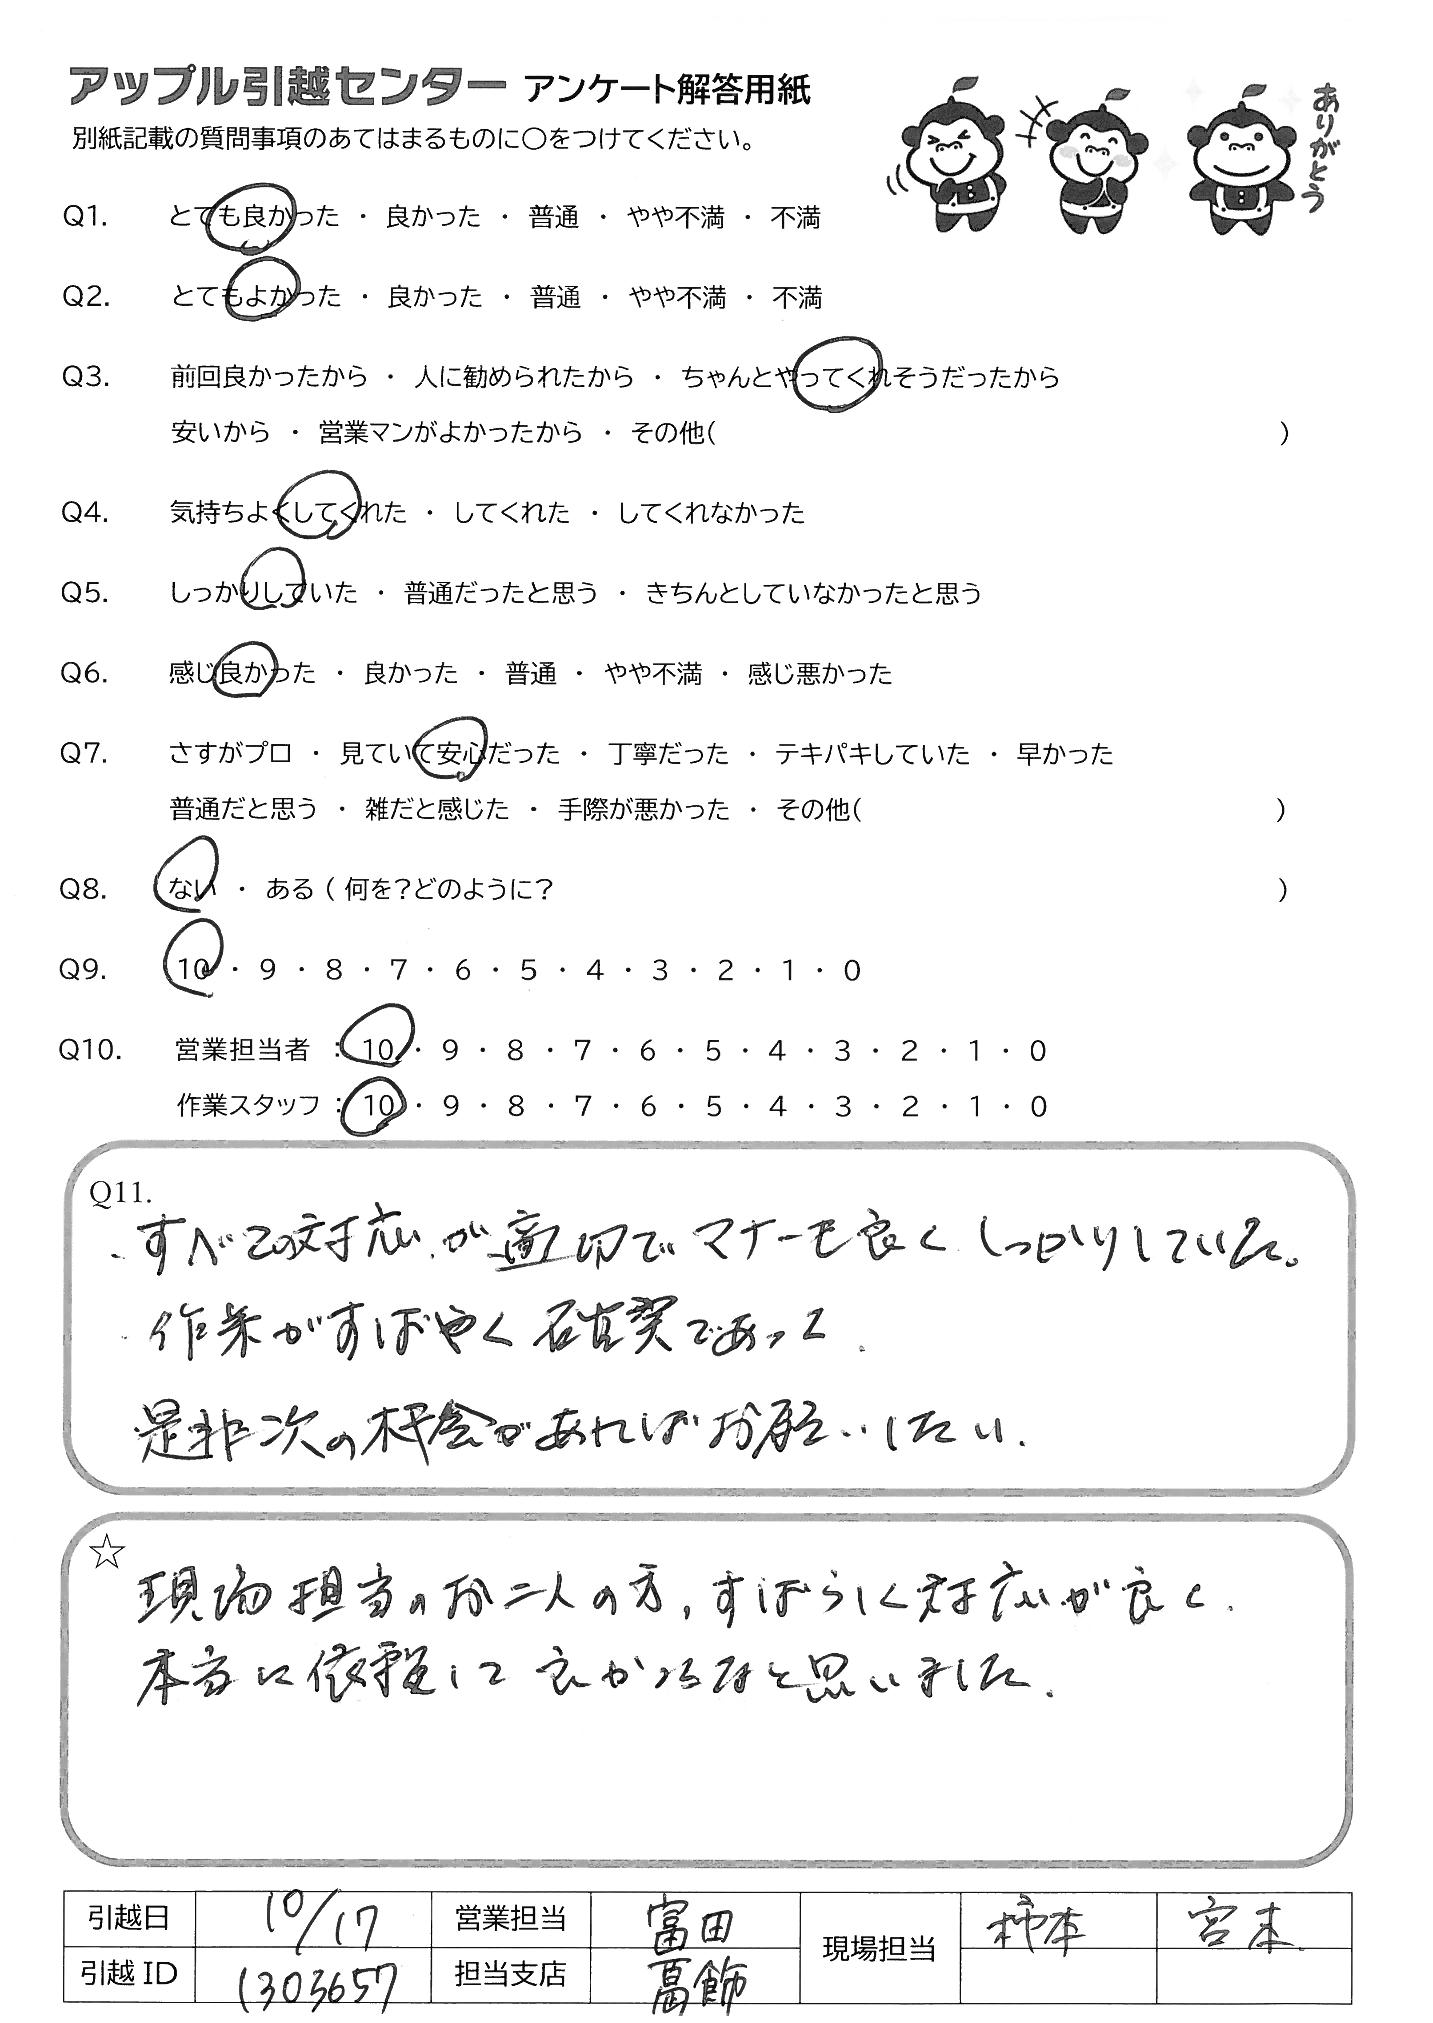 アップル引越センター アンケート解答用紙
別紙記載の質問事項のあてはまるものに○をつけてください。
ありがとう
Q1. とても良かった ・ 良かった ・ 普通 ・ やや不満 ・ 不満
Q2. とてもよかった ・ 良かった ・ 普通 ・ やや不満 ・ 不満
Q3. 前回良かったから ・ 人に勧められたから ・ ちゃんとやってくれそうだったから
安いから ・ 営業マンがよかったから ・ その他( )
Q4. 気持ちよくしてくれた ・ してくれた ・ してくれなかった
Q5. しっかりしていた ・ 普通だったと思う ・ きちんとしていなかったと思う
Q6. 感じ良かった ・ 良かった ・ 普通 ・ やや不満 ・ 感じ悪かった
Q7. さすがプロ ・ 見ていて安心だった ・ 丁寧だった ・ テキパキしていた ・ 早かった
普通だと思う ・ 雑だと感じた ・ 手際が悪かった ・ その他( )
Q8. ない ・ ある ( 何を?どのように? )
Q9. 10 ・ 9 ・ 8 ・ 7 ・ 6 ・ 5 ・ 4 ・ 3 ・ 2 ・ 1 ・ 0
Q10. 営業担当者 : 10 ・ 9 ・ 8 ・ 7 ・ 6 ・ 5 ・ 4 ・ 3 ・ 2 ・ 1 ・ 0
作業スタッフ : 10 ・ 9 ・ 8 ・ 7 ・ 6 ・ 5 ・ 4 ・ 3 ・ 2 ・ 1 ・ 0
Q11.
・すべての対応が適切でマナーも良くしっかりしていた。
・作業がすばやく確実であって.
是非次の機会があればお願いしたい.
☆
現場担当のお二人の方, すばらしく対応が良く.
本当に依頼して良かったなと思いました.
引越日 10/17 営業担当 富田 現場担当 柿本 宮本
引越ID 1303657 担当支店 葛飾